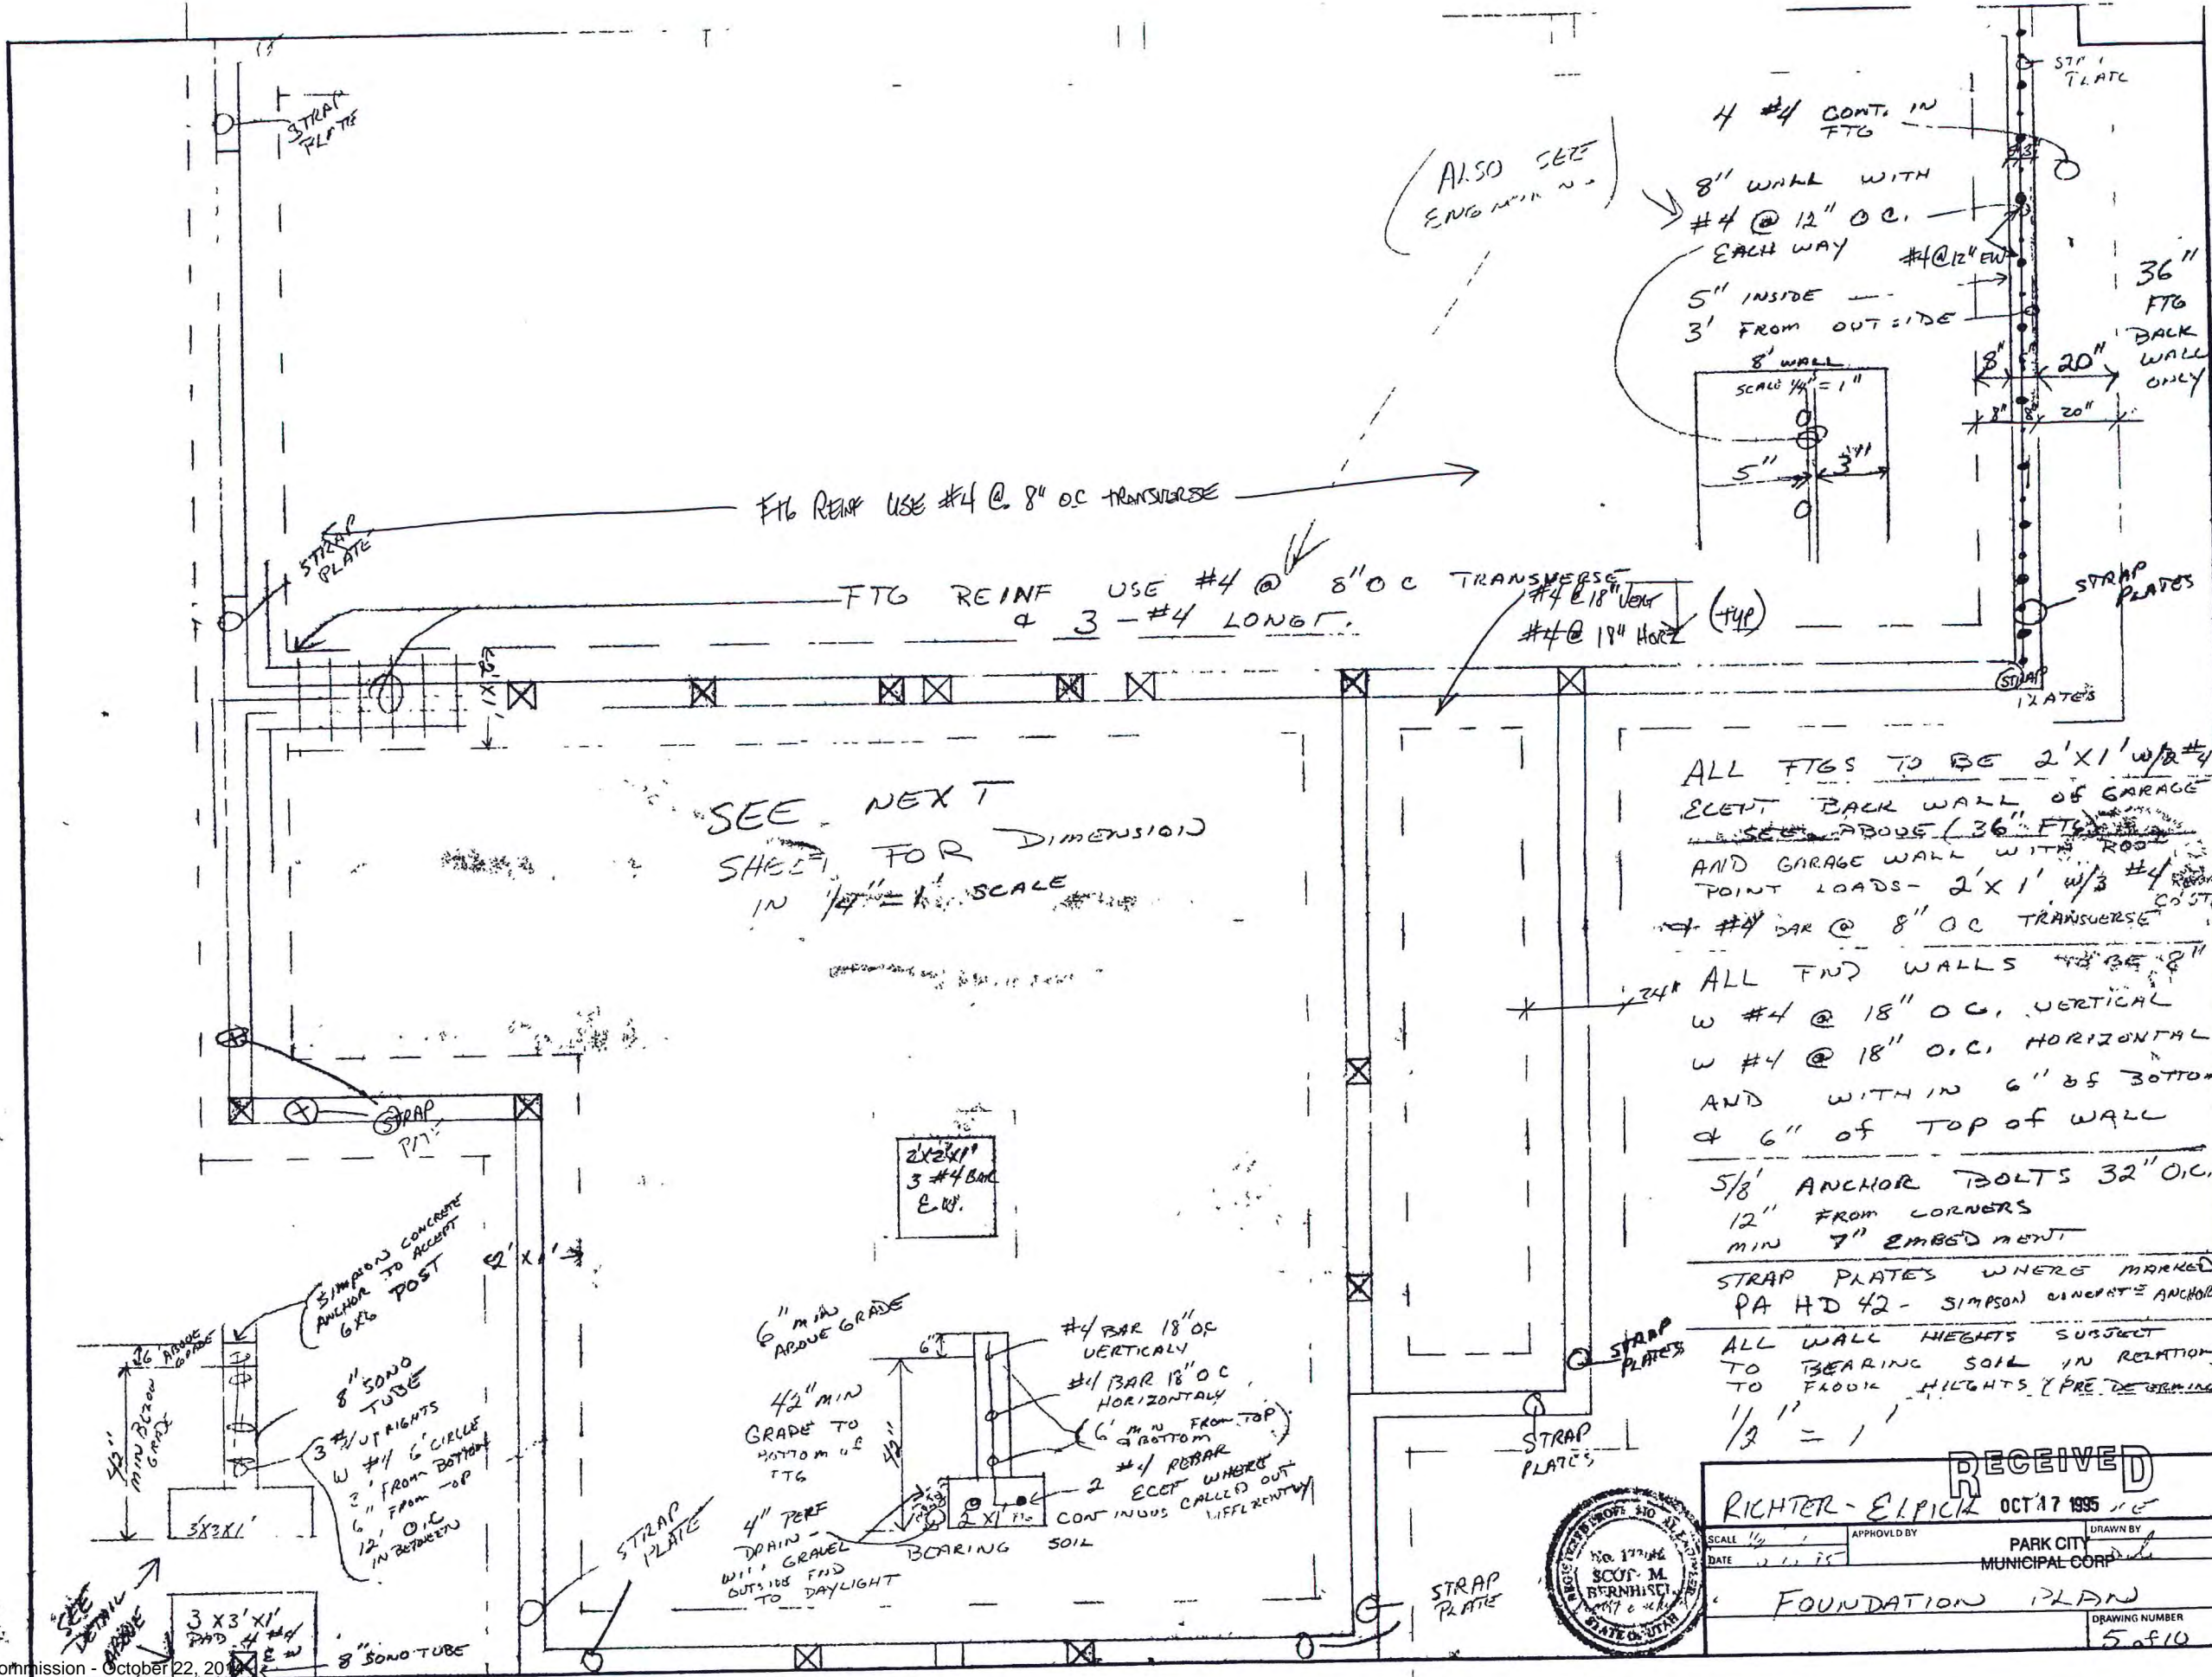 STRAP
PLATE
4 #4 CONT. IN
FTG
(ALSO SEE
8" WALL WITH
#4 @ 12" O C.
EACH WAY
#4@12" EW
5" INSIDE
3' FROM OUTSIDE
36"
FTG
BACK
WALL
ONLY
8" 20"
8" 8" 20"
8" WALL
SCALE 1/4" = 1"
5" 3"
FTG REINF USE #4 @ 8" OC TRANSVERSE
STRAP
PLATE
FTG REINF USE #4 @ 8" O C TRANSVERSE
& 3 - #4 LONGT.
#4 @ 18" VERT
#4 @ 18" HORZ (TYP)
STRAP
PLATES
2'X1'
STRAP
PLATES
SEE NEXT
SHEET FOR DIMENSION
IN 1/4" = 1' SCALE
ALL FTGS TO BE 2'X1' W/2 #4
ECEPT BACK WALL OF GARAGE
SEE ABOVE (36" FTG)
AND GARAGE WALL WITH ROOF
POINT LOADS - 2'X1' W/3 #4
& #4 BAR @ 8" OC TRANSVERSE
24"
ALL FND WALLS TO BE 8"
W #4 @ 18" O C. VERTICAL
W #4 @ 18" O.C. HORIZONTAL
AND WITHIN 6" OF BOTTOM
& 6" of TOP of WALL
5/8" ANCHOR BOLTS 32" O.C.
12" FROM CORNERS
MIN 7" EMBEDMENT
STRAP PLATES WHERE MARKED
PA HD 42 - SIMPSON CONCRETE ANCHOR
ALL WALL HIEGHTS SUBJECT
TO BEARING SOIL IN RELATION
TO FLOOR HIEGHTS (PRE DETERMINED
1/2" = 1'
STRAP
2'X2'X1'
3 #4 BAR
E.W.
2'X1'
SIMPSON CONCRETE
ANCHOR TO ACCEPT
6X6 POST
6" ABOVE
GRADE
42"
MIN BELOW
GRADE
8" SONO
TUBE
3 #4 UPRIGHTS
W #4 6" CIRCLE
2" FROM BOTTOM
6" FROM TOP
12" O.C
IN BETWEEN
3'X3'X1'
SEE
DETAIL
ABOVE
3 X3'X1'
PAD 4 #4
E W
8" SONO TUBE
6" min
ABOVE GRADE
6"
42" MIN
GRADE TO
BOTTOM of
FTG
42"
#4 BAR 18" OC
VERTICALY
#4 BAR 18" O C
HORIZONTALY
(6" MIN FROM TOP
& BOTTOM)
2 #4 REBAR
ECEP WHERE
CONTINUOUS CALLED OUT
DIFFERENTLY
2'X1' FTG
BEARING SOIL
4" PERF
DRAIN -
WITH GRAVEL
OUTSIDE FND
TO DAYLIGHT
STRAP
PLATE
STRAP
PLATES
STRAP
PLATES
STRAP
PLATE
SCOT M.
BERNHISEL
STATE OF UTAH
RECEIVED
OCT 17 1995
PARK CITY
MUNICIPAL CORP
SCALE
APPROVED BY
DRAWN BY
DATE
FOUNDATION PLAN
DRAWING NUMBER
5 of 10
ommission - October 22, 201